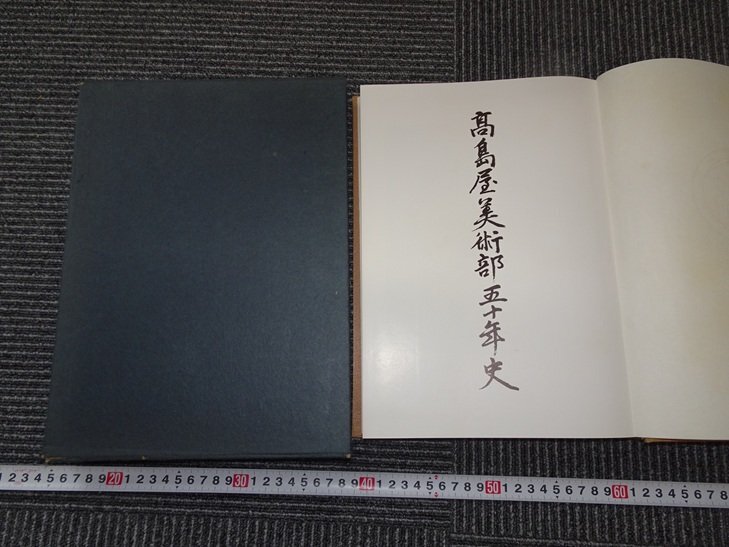 髙島屋美術部五十年史
1 2 3 4 5 6 7 8 9 20 1 2 3 4 5 6 7 8 9 30 1 2 3 4 5 6 7 8 9 40 1 2 3 4 5 6 7 8 9 50 1 2 3 4 5 6 7 8 9 60 1 2 3 4 5 6 7 8